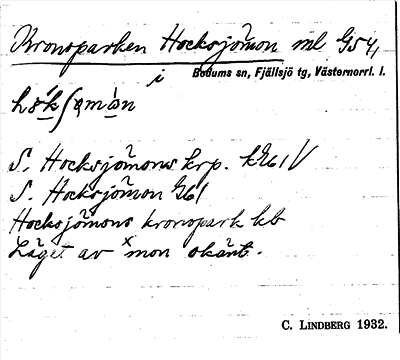 Kronoparken Hocksjömon ml G54,
i Bodums sn, Fjällsjö tg, Västernorrl. l.
S. Hocksjömons krp. kG61V
S. Hocksjömon G61
Hocksjömons kronopark kb
Läget av ˣmon okänt.
C. LINDBERG 1932.